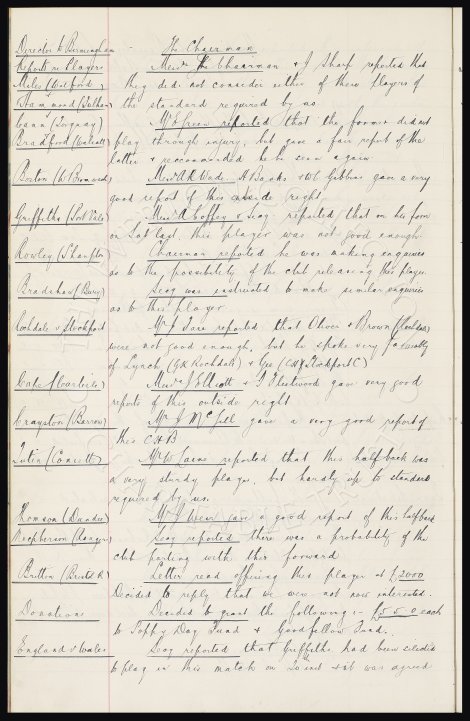 Director to Birmingham - The Chairman
Reports re Players Messrs The Chairman & J Sharp reported that
Miles (Watford) they did not consider either of these players of
Hammond (Fulham) the standard required by us
Cann (Torquay) Mr E Green reported that the former did not
Bradford (Walsall) play through injury, but gave a fair report of the
latter & recommended he be seen again
Boston (W. Bromwich) Messrs A R Wade, H Banks & W C Gibbins gave a very
good report of this outside right
Griffiths (Port Vale) Messrs A Coffey & Secy reported that on his form
on Sat last, this player was not good enough
Rowley (S'hampton) Chairman reported he was making enquiries
as to the possibility of the club releasing this player
Bradshaw (Bury) Secy was instructed to make similar enquiries
as to this player
Rochdale v Stockport Mr J Fare reported that Oliver & Brown (Rochdale)
were not good enough, but he spoke very favourably
of Lynch (GK Rochdale) & Gee (CH Stockport C)
Cape (Carlisle) Messrs J Elliott & J Fleetwood gave very good
reports of this outside right
Grayston (Barrow) Mr J McGill gave a very good report of
this CHB
(Consett) Mr W reported that this half back was
a very sturdy player, but hardly up to standard
required by us.
Thomson (Dundee) Mr J Weir gave a good report of this half back
Macpherson (Rangers) Secy reported there was a probability of the
club parting with this forward
Britton (Bristol R) Letter read offering this player at £2000
Decided to reply that we were not now interested.
Donations Decided to grant the following :- £5 5 0 each
to Poppy Day Fund & Goodfellow Fund.
England v Wales Secy reported that Griffiths had been selected
to play in this match on inst & it was agreed